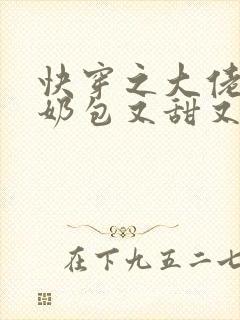 快穿之大佬
奶包又甜又
在下九五二七